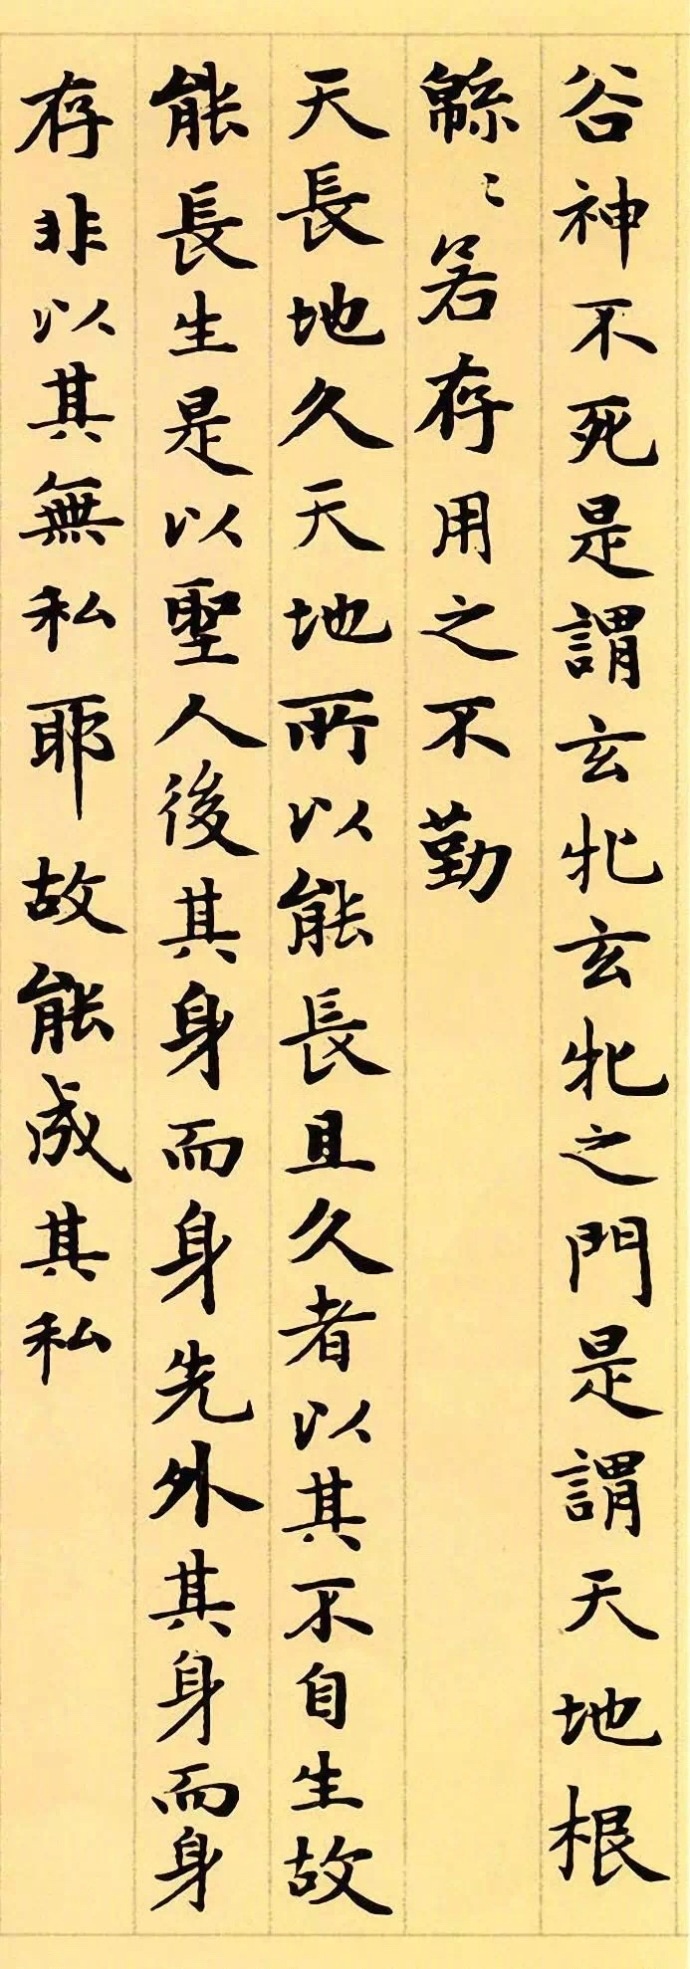 谷神不死是謂玄牝玄牝之門是謂天地根
緜〻若存用之不勤
天長地久天地所以能長且久者以其不自生故
能長生是以聖人後其身而身先外其身而身
存非以其無私耶故能成其私